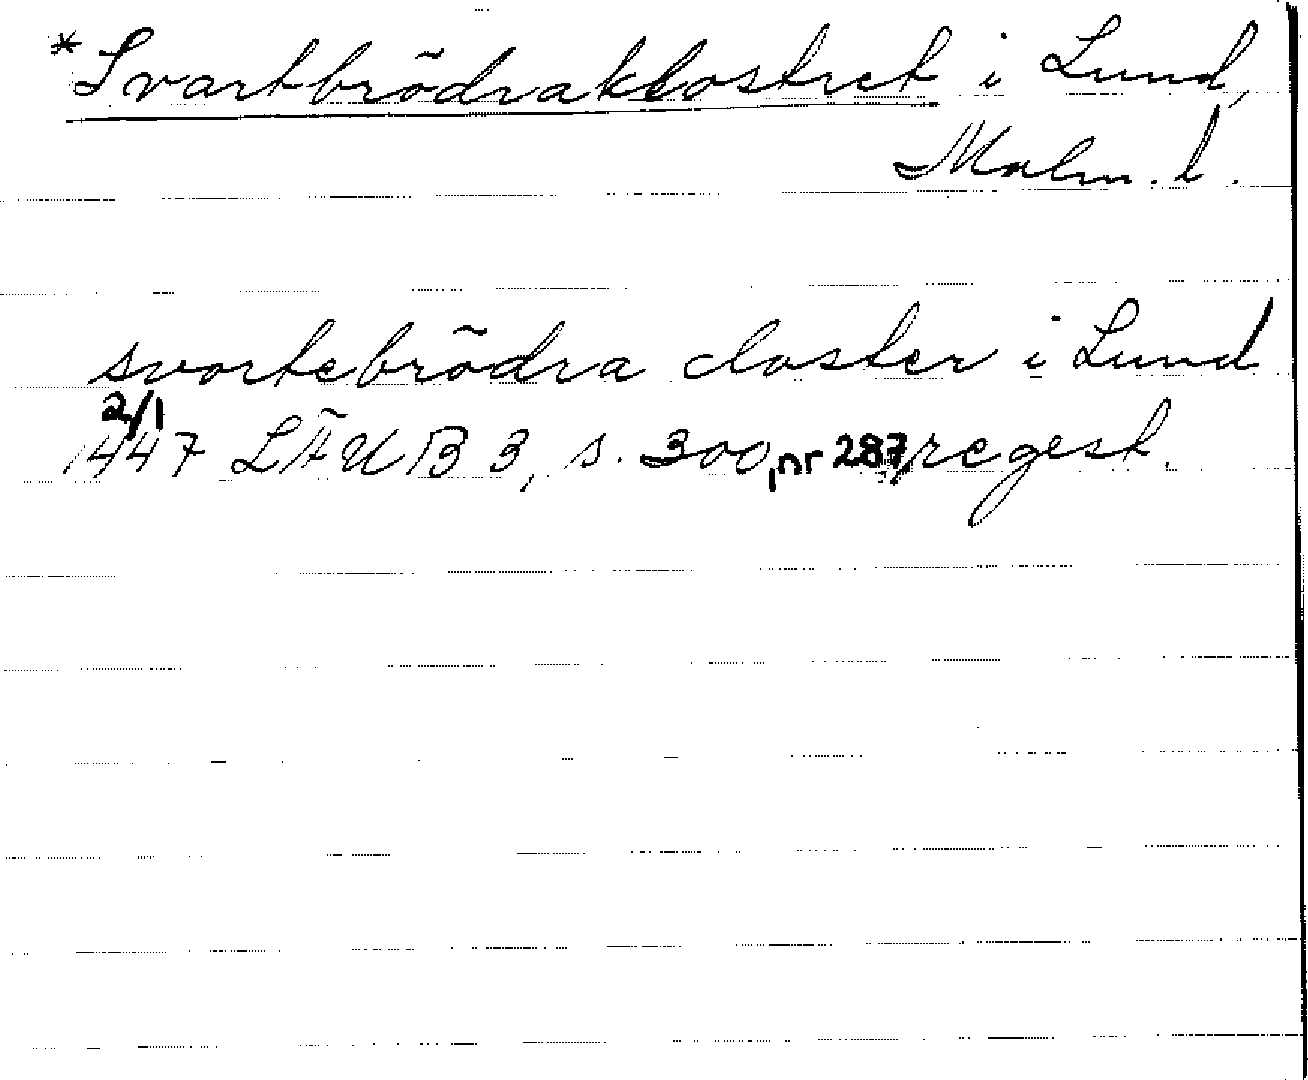 *Svartbrödraklostret i Lund,
Malm. l.
svortebrödra closter i Lund
2/1
1447 LÄUB 3, s. 300, nr 287, regest.